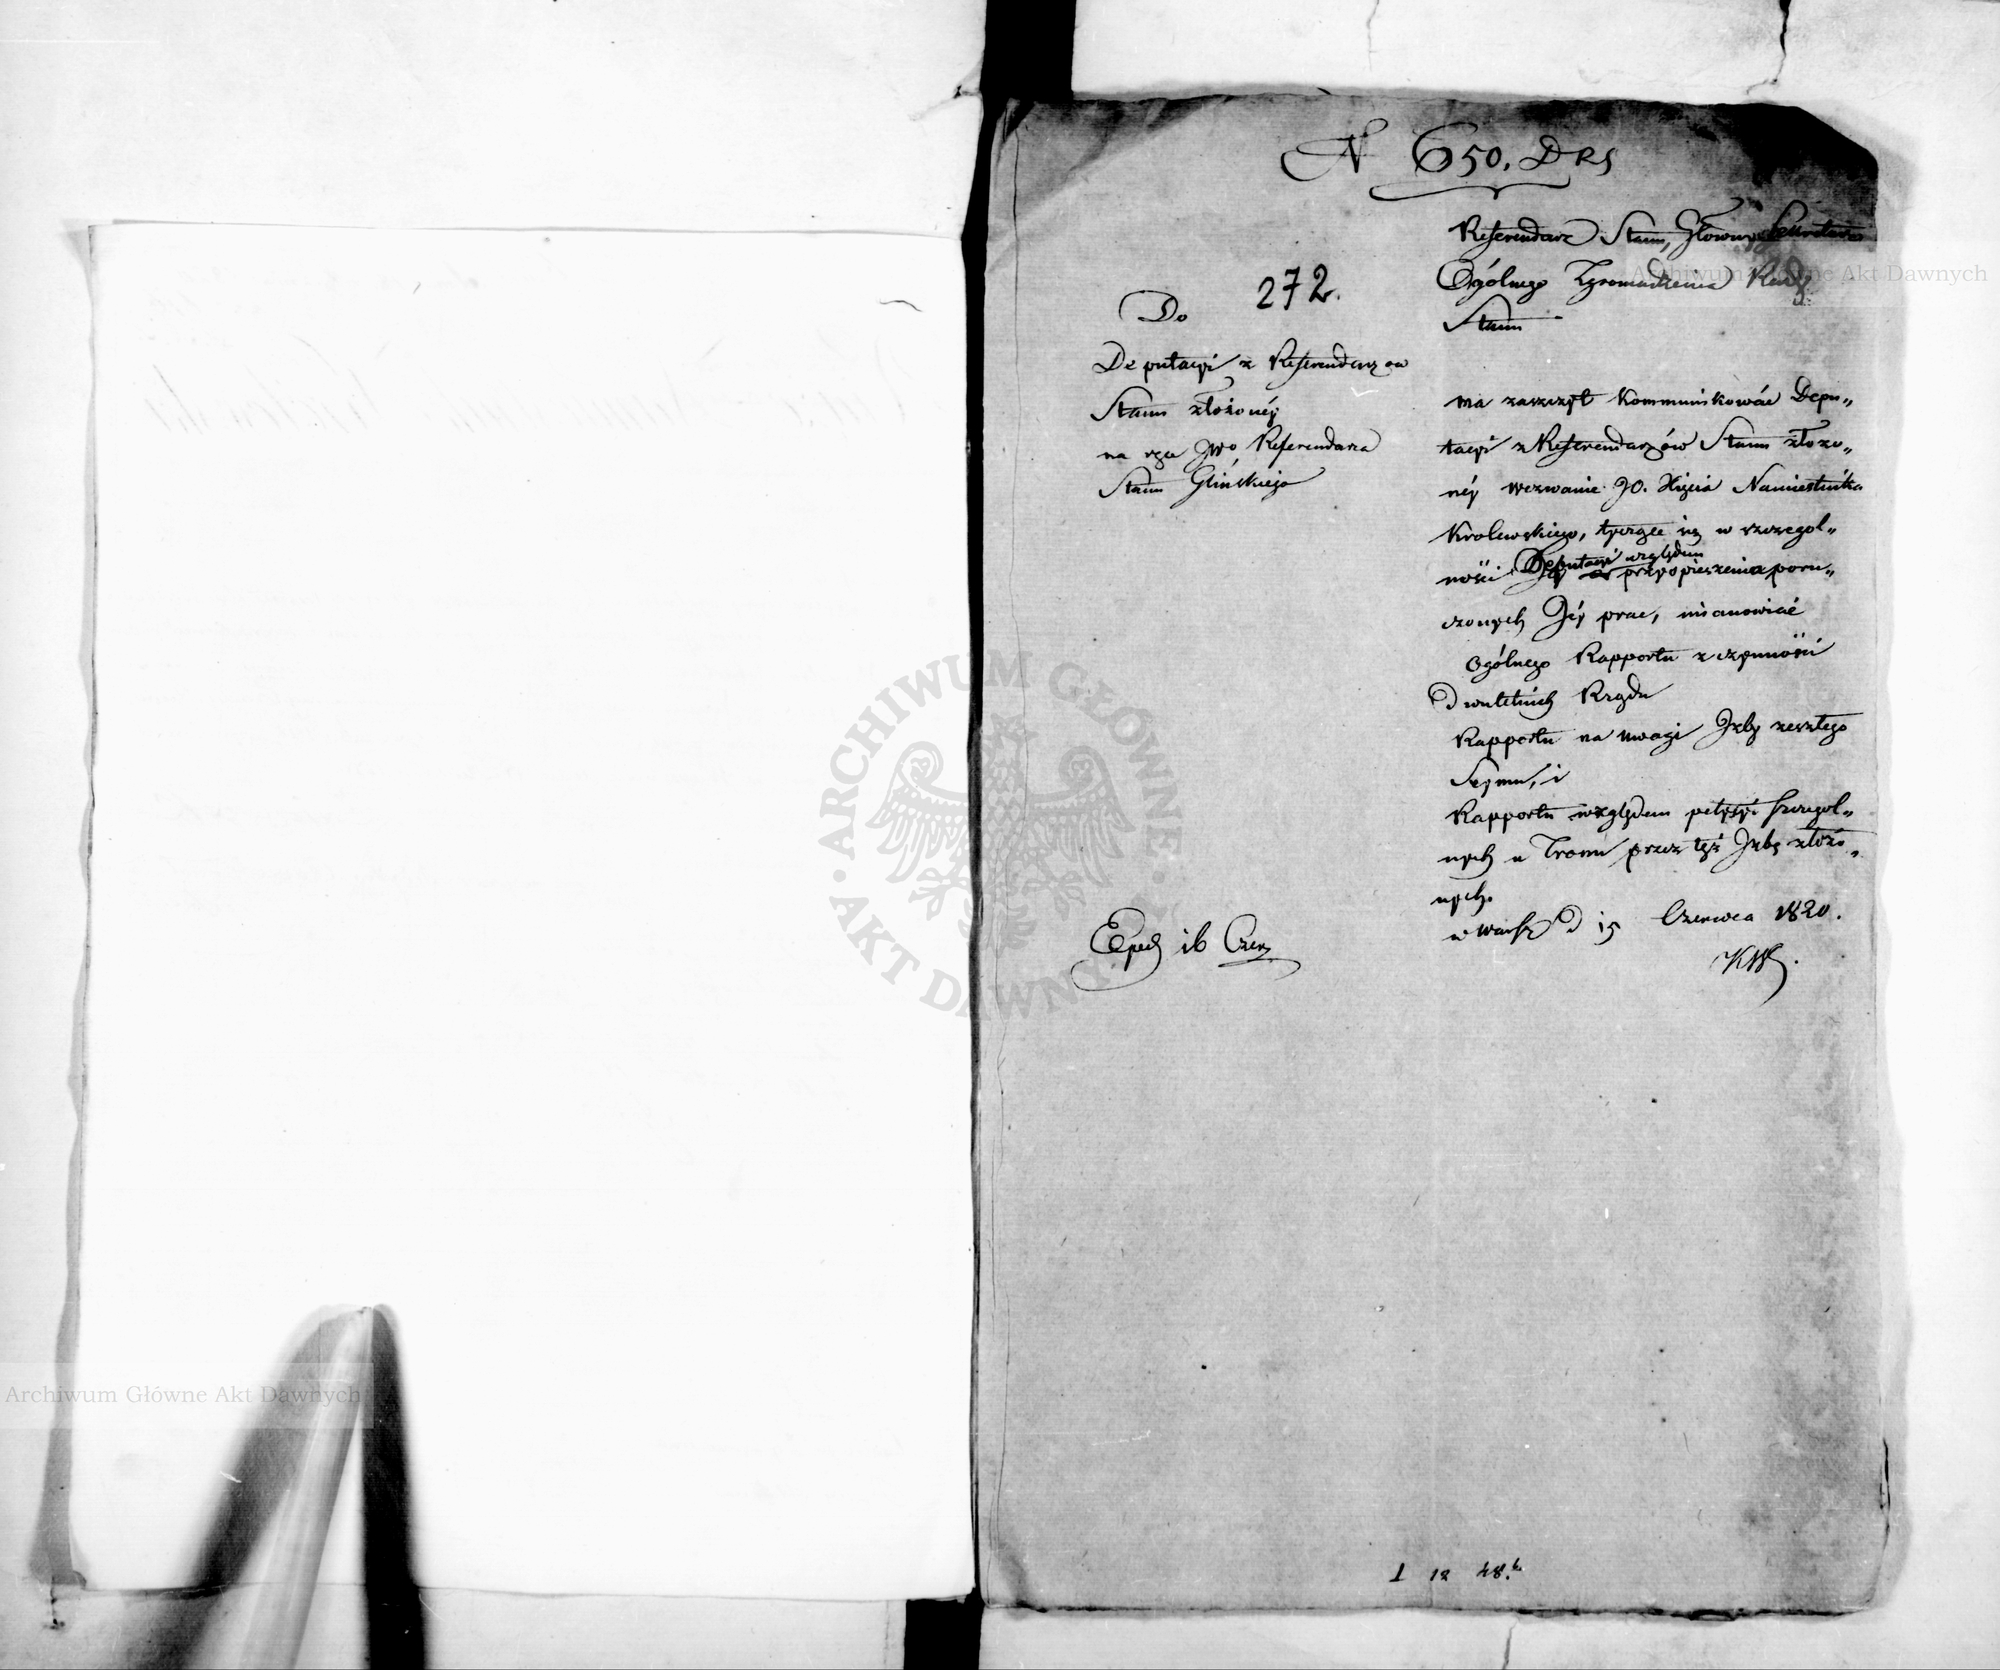 N 650. DRS
272.
Do
Deputacyi z Referendarzow
Stanu złożonéy
na ręce JWo Referendarza
Stanu Glińskiego
Exped 16 Czer
Referendarz Stanu, Główny Sekretarz
Ogólnego Zgromadzenia Rady
Stanu
ma zaszczyt kommunikować Depu„
tacyi z Referendarzów Stanu złożo„
néy wezwanie JO. Xięcia Namiestnika
Krolewskiego, tyczące się w szczegol„
ności Deputacyi względem
przyspieszenia poru„
czonych Jéy prac, mianowicié
Ogólnego Rapportu z czynności
Dwuletnich Rządu
Rapportu na uwagi Izby zeszłego
Seymu, i
Rapportu względem petycyi szczegol„
nych u Tronu przez tęż Izbę złożo„
nych.
w Warsz d 15 Czerwca 1820.
I 12 48.
Archiwum Główne Akt Dawnych
ARCHIWUM GŁÓWNE AKT DAWNYCH
Archiwum Główne Akt Dawnych